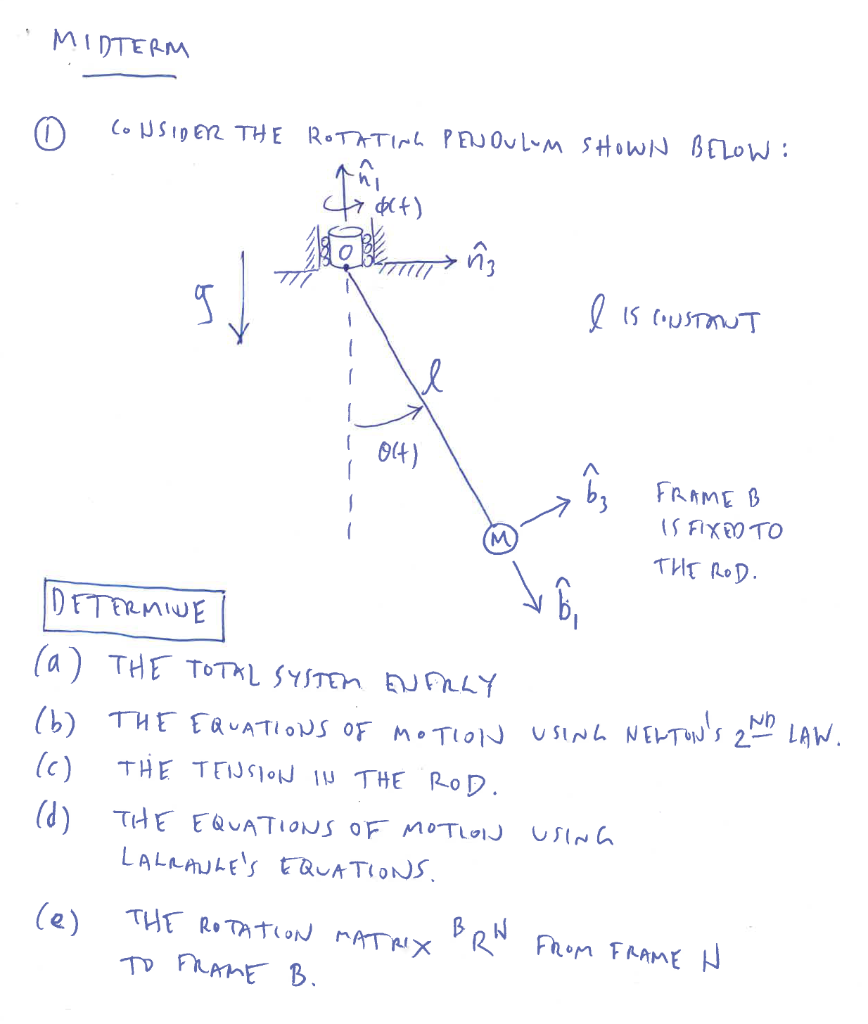 MIDTERM
① CONSIDER THE ROTATING PENDULUM SHOWN BELOW:
n̂₁
φ(t)
O
n̂₃
g
l IS CONSTANT
l
θ(t)
b̂₃
FRAME B
IS FIXED TO
THE ROD.
M
b̂₁
DETERMINE
(a) THE TOTAL SYSTEM ENERGY
(b) THE EQUATIONS OF MOTION USING NEWTON'S 2ND LAW.
(c) THE TENSION IN THE ROD.
(d) THE EQUATIONS OF MOTION USING
LAGRANGE'S EQUATIONS.
(e) THE ROTATION MATRIX ᴮRᴺ FROM FRAME N
TO FRAME B.